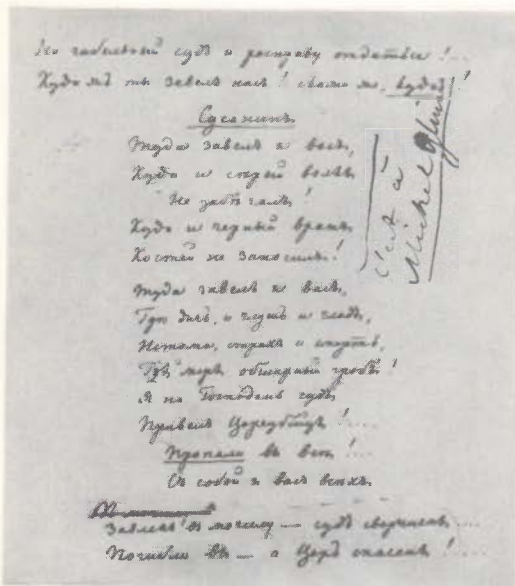 На гибельный судъ и расправу отдаться!...
Куда жъ ты завелъ насъ! скажи мнѣ, куда!
Сусанинъ
Туда завелъ я васъ,
Куда и сѣрый волкъ
Не забѣгалъ!
Куда и черный вранъ
Костей не заносилъ!
Туда завелъ я васъ,
Гдѣ дичь, и глушь и гладь,
Истома, страхъ и смерть,
Гдѣ обширный гробъ!
Я на Господень судъ
Привелъ Цареубійцъ!...
Пропали вы всѣ!...
Съ собой я васъ всѣхъ
Завлекъ въ могилу — судъ свершенъ....
Погибли вы — а Царь спасенъ!....
C'est à
Michel Glinka